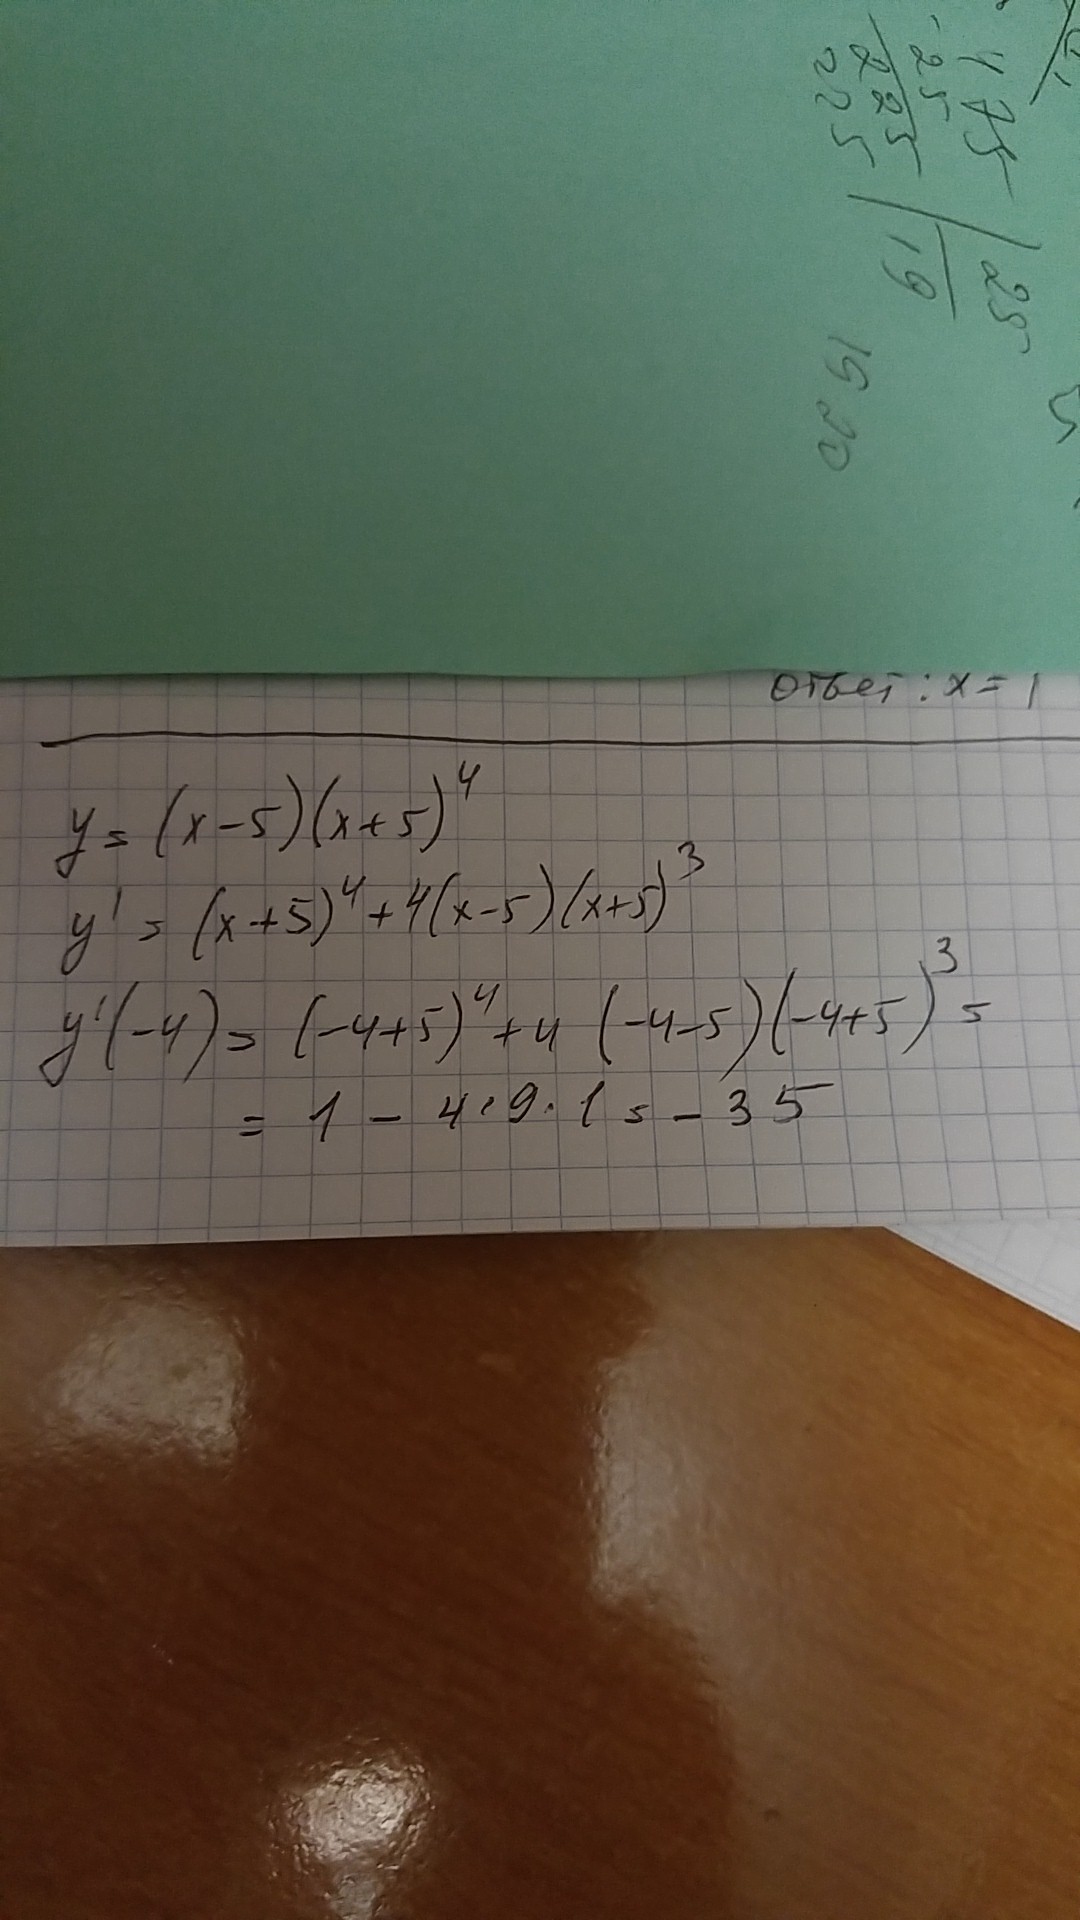 475 | 25
-25 | 19
225
225
19 20
Ответ: x = 1
y = (x-5)(x+5)^4
y' = (x+5)^4 + 4(x-5)(x+5)^3
y'(-4) = (-4+5)^4 + 4 (-4-5)(-4+5)^3 =
= 1 - 4·9·1 = -35